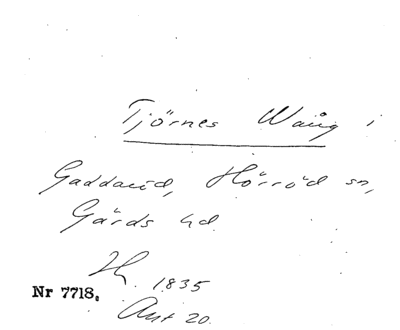 Tjörnes Wång i
Gaddaröd, Hörröd sn,
Gärds hd.
1835
Nr 7718.
Akt 20.